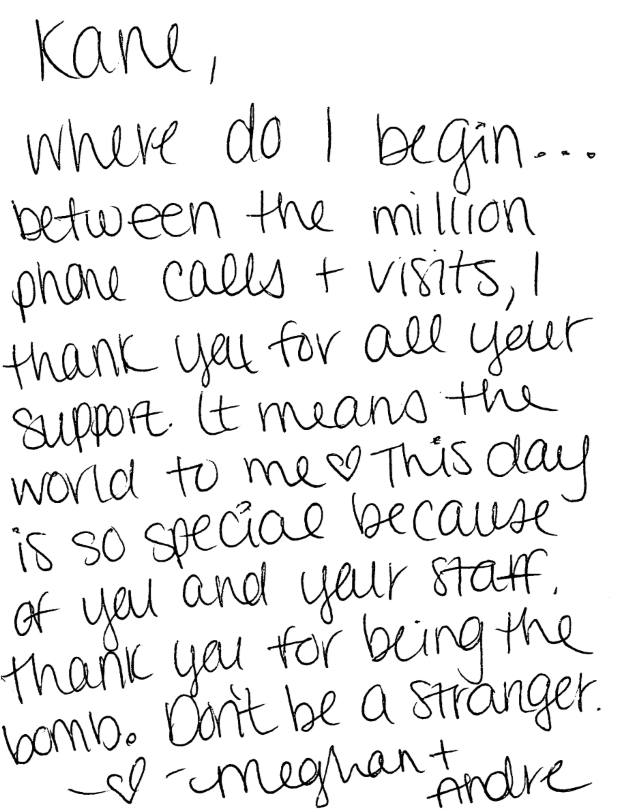 Kane,
where do I begin...
between the million
phone calls + visits, I
thank you for all your
support. It means the
world to me ♡ This day
is so special because
of you and your staff.
thank you for being the
bomb. Don't be a stranger.
-♡- Meghan +
Andre